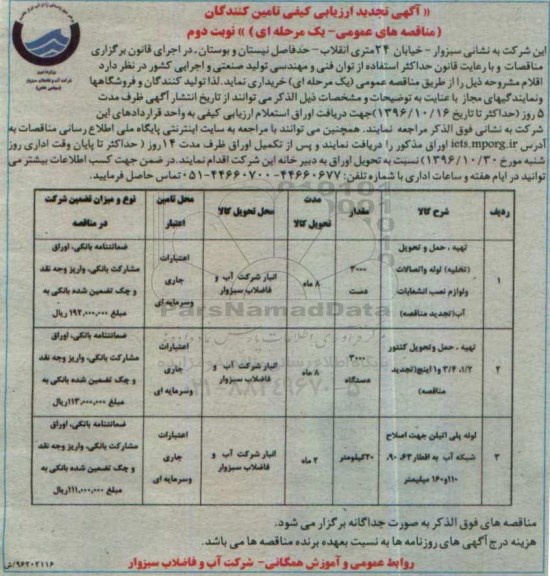 « آگهی تجدید ارزیابی کیفی تامین کنندگان
(مناقصه های عمومی- یک مرحله ای) » نوبت دوم
این شرکت به نشانی سبزوار - خیابان ۲۴متری انقلاب - حدفاصل نیستان و بوستان، در اجرای قانون برگزاری
مناقصات و با رعایت قانون حداکثر استفاده از توان فنی و مهندسی تولید صنعتی و اجرایی کشور در نظر دارد
اقلام مشروحه ذیل را از طریق مناقصه عمومی (یک مرحله ای) خریداری نماید. لذا تولید کنندگان و فروشگاهها
ونمایندگیهای مجاز با عنایت به توضیحات و مشخصات ذیل الذکر می توانند از تاریخ انتشار آگهی ظرف مدت
۵ روز (حداکثر تا تاریخ ۱۳۹۶/۱۰/۱۶) جهت دریافت اوراق استعلام ارزیابی کیفی به واحد قراردادهای این
شرکت به نشانی فوق الذکر مراجعه نمایند. همچنین می توانند با مراجعه به سایت اینترنتی پایگاه ملی اطلاع رسانی مناقصات به
آدرس iets.mporg.ir اوراق مذکور را دریافت نمایند و پس از تکمیل اوراق ظرف مدت ۱۴ روز ( حداکثر تا پایان وقت اداری روز
شنبه مورخ ۱۳۹۶/۱۰/۳۰) نسبت به تحویل اوراق به دبیر خانه این شرکت اقدام نمایند. در ضمن جهت کسب اطلاعات بیشتر می
توانید در ایام هفته و ساعات اداری با شماره تلفن: ۴۴۶۶۰۶۷۷-۴۴۶۶۰۷۰۰-۰۵۱ تماس حاصل فرمایید.
ردیف | شرح کالا | مقدار | مدت تحویل کالا | محل تحویل کالا | محل تامین اعتبار | نوع و میزان تضمین شرکت در مناقصه
۱ | تهیه ، حمل و تحویل (تخلیه) لوله واتصالات ولوازم نصب انشعابات آب(تجدید مناقصه) | ۳۰۰۰ دست | ۸ ماه | انبار شرکت آب و فاضلاب سبزوار | اعتبارات جاری وسرمایه ای | ضمانتنامه بانکی، اوراق مشارکت بانکی، واریز وجه نقد و چک تضمین شده بانکی به مبلغ ۱۹۲,۰۰۰,۰۰۰ ریال
۲ | تهیه ، حمل وتحویل کنتور ۱/۲، ۳/۴ و۱ اینچ(تجدید مناقصه) | ۳۰۰۰ دستگاه | ۸ ماه | انبار شرکت آب و فاضلاب سبزوار | اعتبارات جاری وسرمایه ای | ضمانتنامه بانکی، اوراق مشارکت بانکی، واریز وجه نقد و چک تضمین شده بانکی به مبلغ ۱۱۳,۰۰۰,۰۰۰ریال
۳ | لوله پلی اتیلن جهت اصلاح شبکه آب به اقطار ۶۳، ۹۰، ۱۱۰و۱۶۰ میلیمتر | ۲۰کیلومتر | ۲ ماه | انبار شرکت آب و فاضلاب سبزوار | اعتبارات جاری وسرمایه ای | ضمانتنامه بانکی، اوراق مشارکت بانکی، واریز وجه نقد و چک تضمین شده بانکی به مبلغ ۱۱۱,۰۰۰,۰۰۰ریال
ParsNamadData
۰۲۱-۸۸۳۴۹۶۷۰-۵
مناقصه های فوق الذکر به صورت جداگانه برگزار می شود.
هزینه درج آگهی های روزنامه ها به نسبت بعهده برنده مناقصه ها می باشد.
روابط عمومی و آموزش همگانی- شرکت آب و فاضلاب سبزوار
۹۶۲۰۲۱۱۶/ش